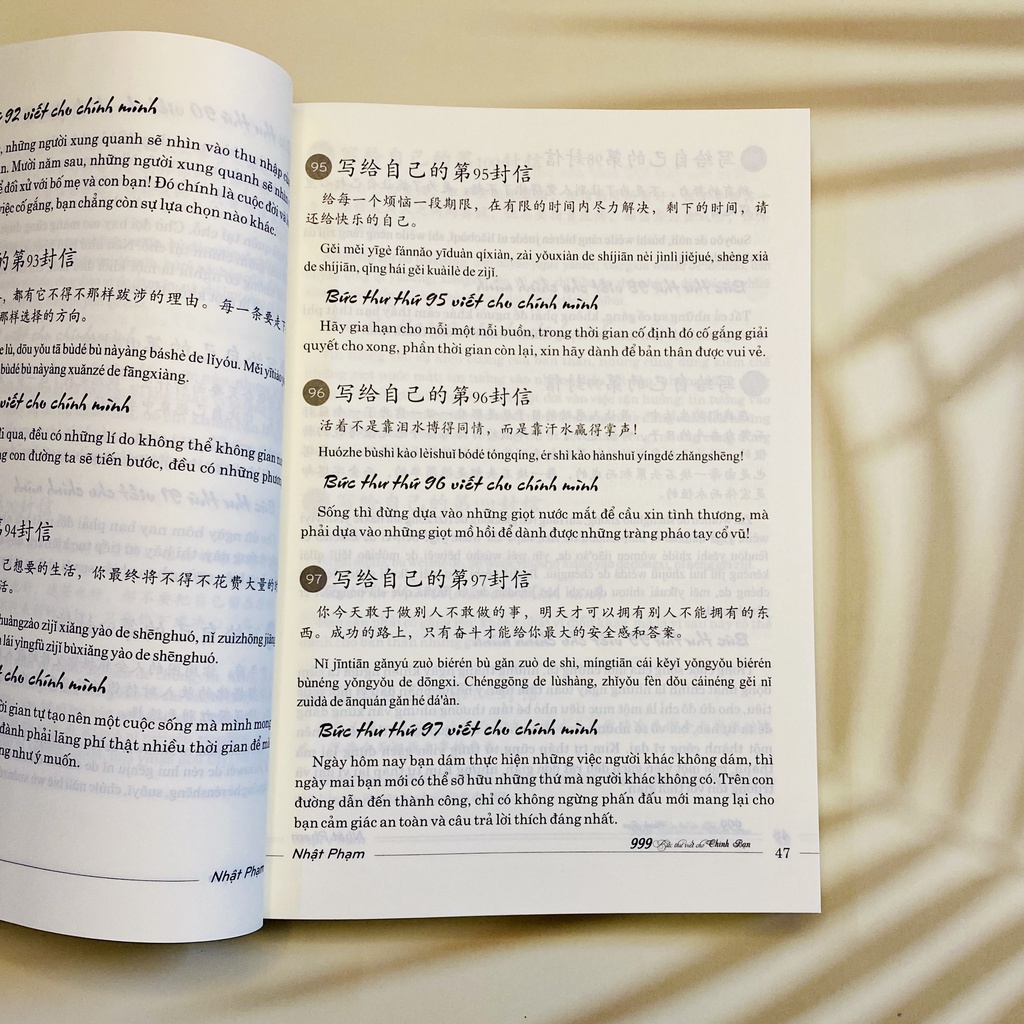 92 viết cho chính mình
, những người xung quanh sẽ nhìn vào thu nhập
n. Mười năm sau, những người xung quanh sẽ
để đối xử với bố mẹ và con bạn! Đó chính là cuộc đời và
việc cố gắng, bạn chẳng còn sự lựa chọn nào khác.
的第93封信
，都有它不得不那样跋涉的理由。每一条要走下
那样选择的方向。
lù, dōu yǒu tā bùdé bù nàyàng báshè de lǐyóu. Měi yītiáo
bùdé bù nàyàng xuǎnzé de fāngxiàng.
viết cho chính mình
đi qua, đều có những lí do không thể không gian
con đường ta sẽ tiến bước, đều có những
第94封信
己想要的生活，你最终将不得不花费大量的
活。
zìjǐ xiǎng yào de shēnghuó, nǐ zuìzhōng
lái yìngfù zìjǐ bùxiǎng yào de shēnghuó.
cho chính mình
gian tự tạo nên một cuộc sống mà mình mong
đành phải lãng phí thật nhiều thời gian để
như ý muốn.
Nhật Phạm
95 写给自己的第95封信
给每一个烦恼一段期限，在有限的时间内尽力解决，剩下的时间，请
还给快乐的自己。
Gěi měi yīgè fánnǎo yīduàn qíxiàn, zài yǒuxiàn de shíjiān nèi jìnlì jiějué, shèng xià
de shíjiān, qǐng hái gěi kuàilè de zìjǐ.
Bức thư thứ 95 viết cho chính mình
Hãy gia hạn cho mỗi một nỗi buồn, trong thời gian cố định đó cố gắng giải
quyết cho xong, phần thời gian còn lại, xin hãy dành để bản thân được vui vẻ.
96 写给自己的第96封信
活着不是靠泪水博得同情，而是靠汗水赢得掌声！
Huózhe bùshì kào lèishuǐ bódé tóngqíng, ér shì kào hànshuǐ yíngdé zhǎngshēng!
Bức thư thứ 96 viết cho chính mình
Sống thì đừng dựa vào những giọt nước mắt để cầu xin tình thương, mà
phải dựa vào những giọt mồ hồi để dành được những tràng pháo tay cổ vũ!
97 写给自己的第97封信
你今天敢于做别人不敢做的事，明天才可以拥有别人不能拥有的东
西。成功的路上，只有奋斗才能给你最大的安全感和答案。
Nǐ jīntiān gǎnyú zuò biérén bù gǎn zuò de shì, míngtiān cái kěyǐ yǒngyǒu biérén
bùnéng yǒngyǒu de dōngxi. Chénggōng de lùshàng, zhǐyǒu fèn dǒu cáinéng gěi nǐ
zuìdà de ānquán gǎn hé dá'àn.
Bức thư thứ 97 viết cho chính mình
Ngày hôm nay bạn dám thực hiện những việc người khác không dám, thì
ngày mai bạn mới có thể sở hữu những thứ mà người khác không có. Trên con
đường dẫn đến thành công, chỉ có không ngừng phấn đấu mới mang lại cho
bạn cảm giác an toàn và câu trả lời thích đáng nhất.
Nhật Phạm 999 Bức thư viết cho Chính Bạn 47